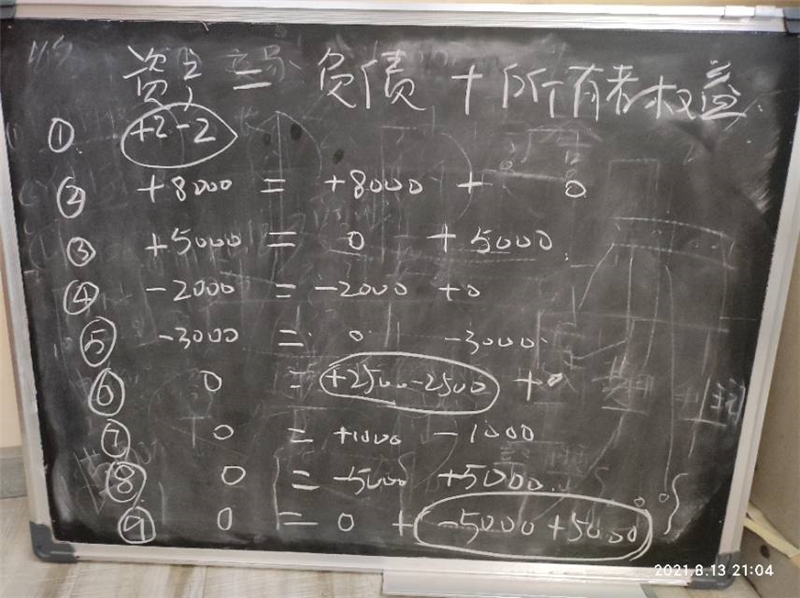 资产 = 负债 + 所有者权益
① +2-2
② +8000 = +8000 + 0
③ +5000 = 0 + 5000
④ -2000 = -2000 +0
⑤ -3000 = 0 -3000
⑥ 0 = +2500-2500 +0
⑦ 0 = +1000 -1000
⑧ 0 = -5000 +5000
⑨ 0 = 0 + -5000+5000
2021.8.13 21:04